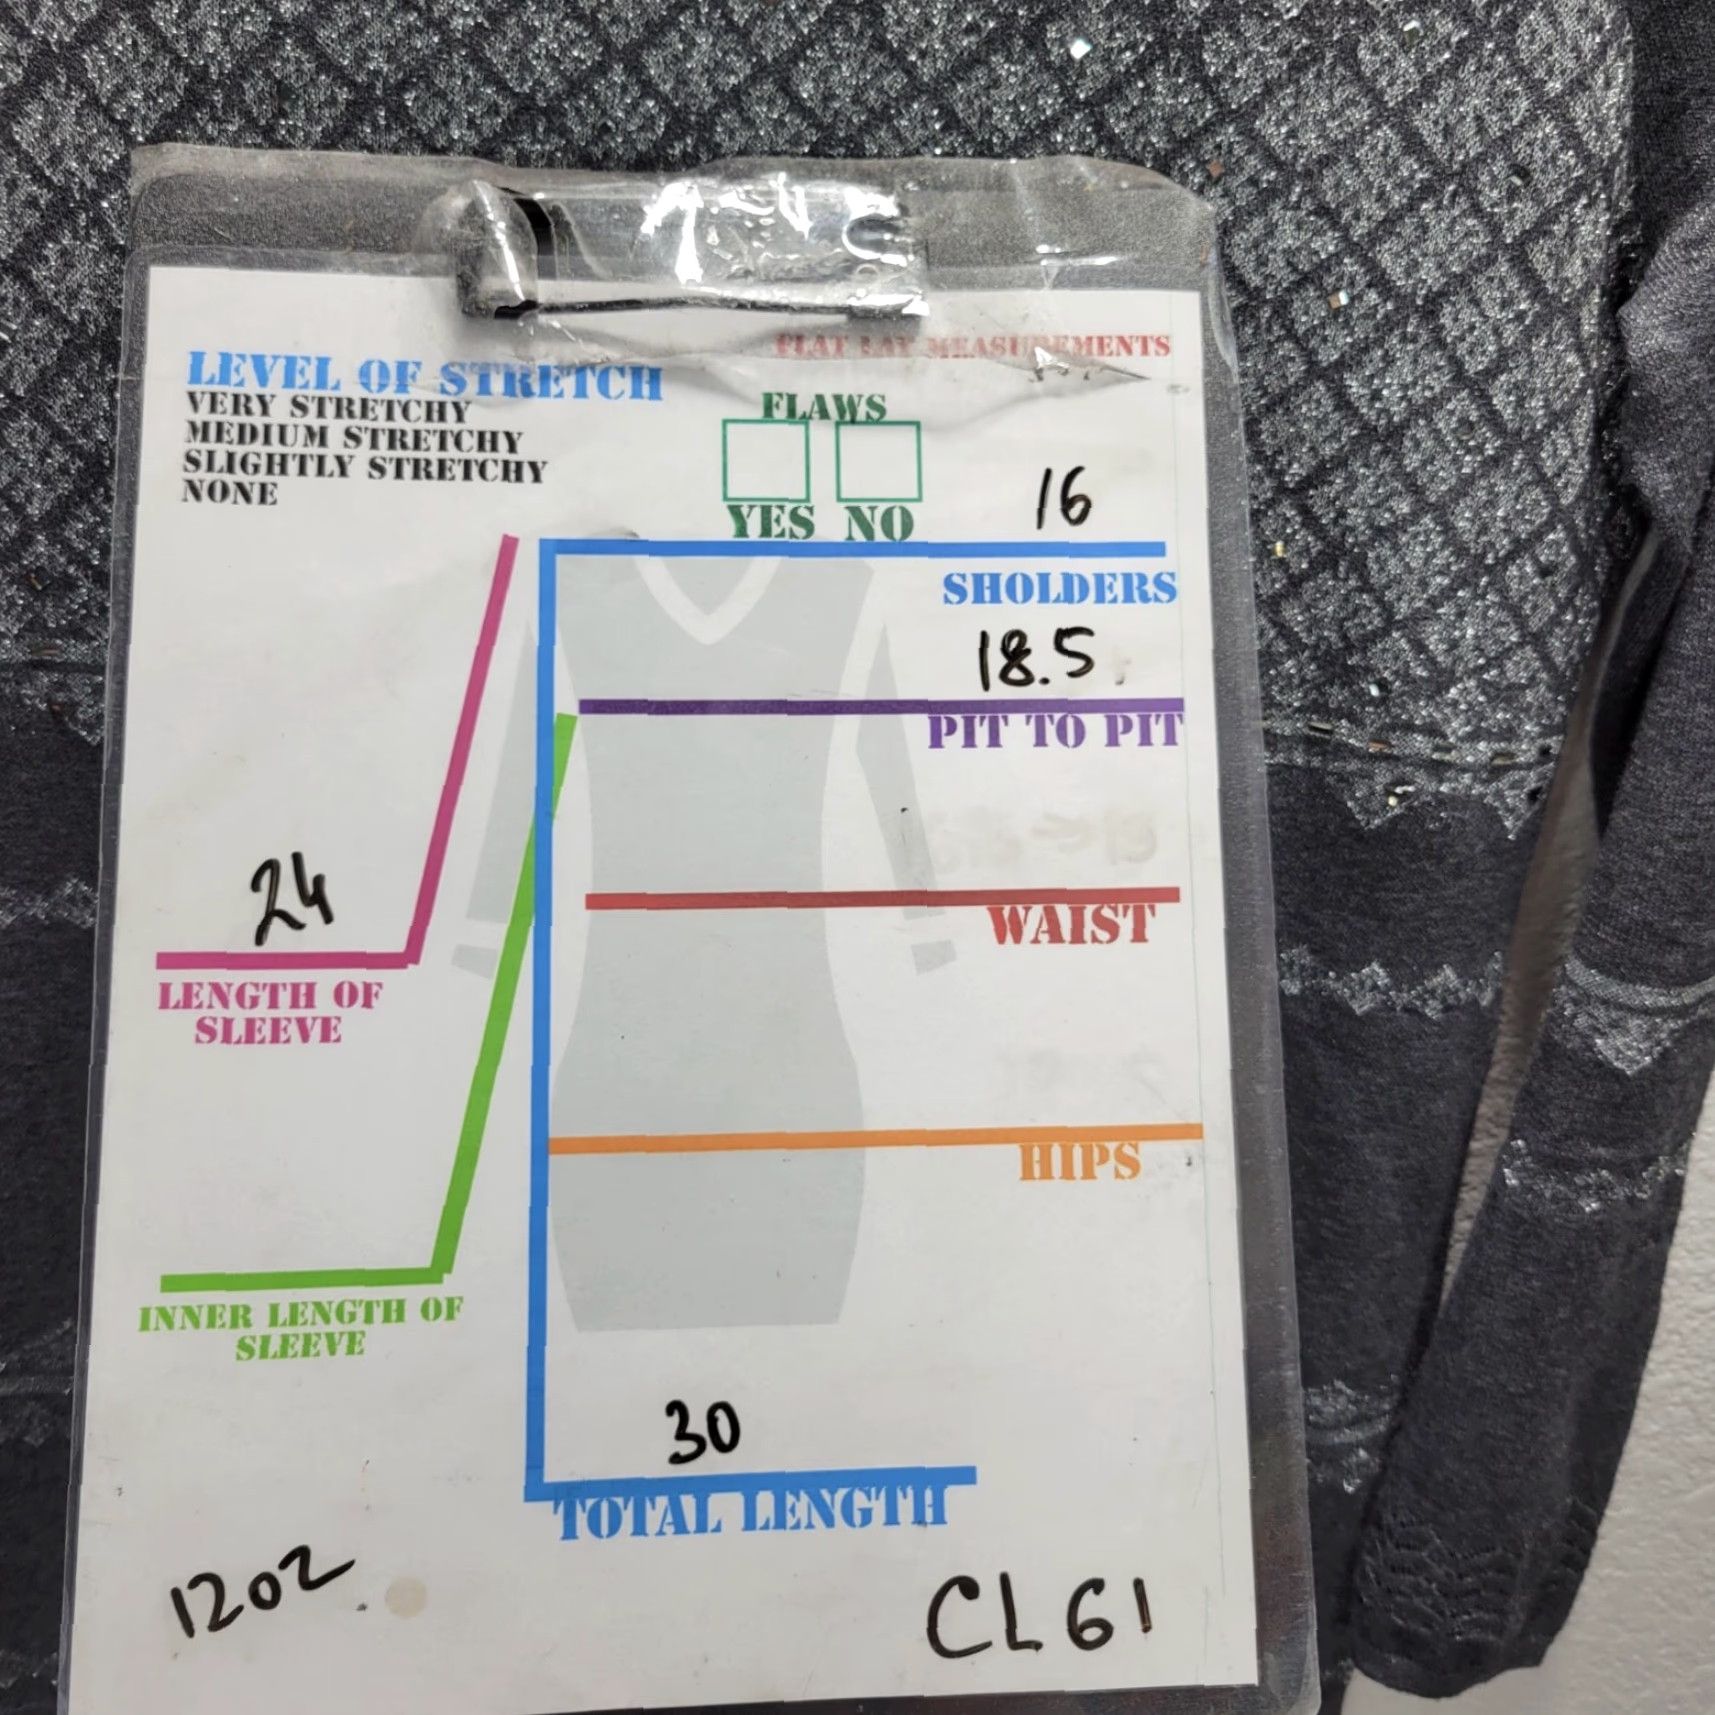 FLAT LAY MEASUREMENTS
LEVEL OF STRETCH
VERY STRETCHY
MEDIUM STRETCHY
SLIGHTLY STRETCHY
NONE
FLAWS
YES NO
16
SHOLDERS
18.5
PIT TO PIT
24
LENGTH OF
SLEEVE
WAIST
HIPS
INNER LENGTH OF
SLEEVE
30
TOTAL LENGTH
1202
CL61